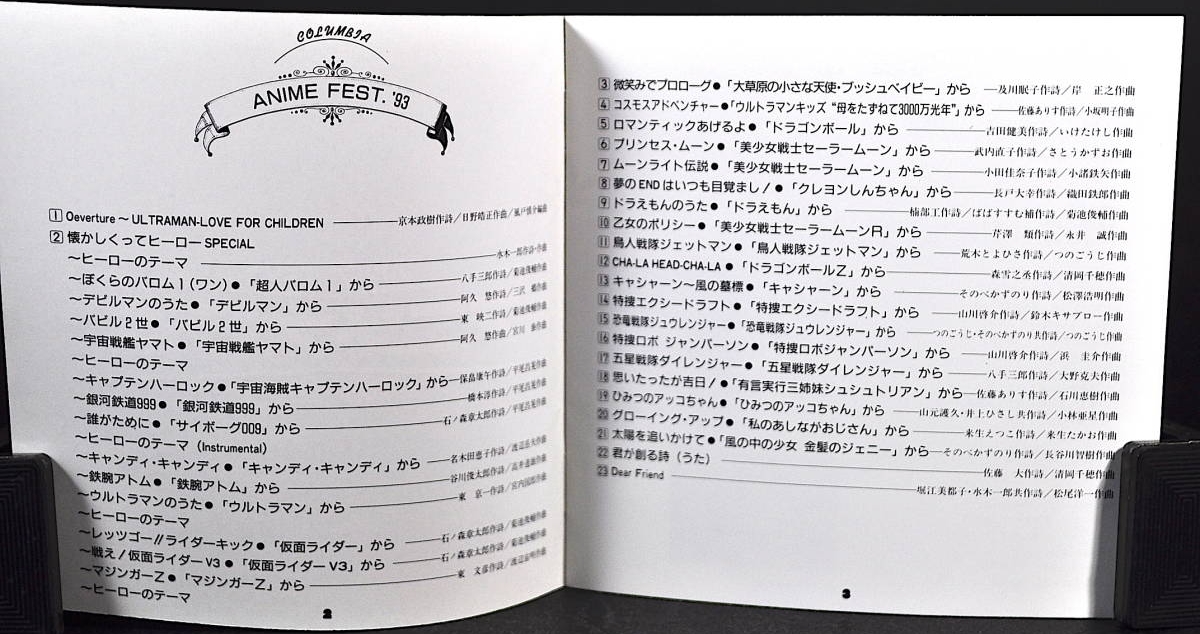 COLUMBIA
ANIME FEST. '93
1 Oeverture～ULTRAMAN-LOVE FOR CHILDREN――京本政樹作詩／日野皓正作曲／風戸慎介編曲
2 懐かしくってヒーローSPECIAL
～ヒーローのテーマ――水木一郎作詩・作曲
～ぼくらのバロム1（ワン）●「超人バロム1」から――八手三郎作詩／菊池俊輔作曲
～デビルマンのうた●「デビルマン」から――阿久 悠作詩／三沢 郷作曲
～バビル2世●「バビル2世」から――東 映二作詩／菊池俊輔作曲
～宇宙戦艦ヤマト●「宇宙戦艦ヤマト」から――阿久 悠作詩／宮川 泰作曲
～ヒーローのテーマ
～キャプテンハーロック●「宇宙海賊キャプテンハーロック」から――保富康午作詩／平尾昌晃作曲
～銀河鉄道999●「銀河鉄道999」から――橋本淳作詩／平尾昌晃作曲
～誰がために●「サイボーグ009」から――石ノ森章太郎作詩／平尾昌晃作曲
～ヒーローのテーマ（Instrumental）
～キャンディ・キャンディ●「キャンディ・キャンディ」から――名木田恵子作詩／渡辺岳夫作曲
～鉄腕アトム●「鉄腕アトム」から――谷川俊太郎作詩／高井達雄作曲
～ウルトラマンのうた●「ウルトラマン」から――東 京一作詩／宮内国郎作曲
～ヒーローのテーマ
～レッツゴー!!ライダーキック●「仮面ライダー」から――石ノ森章太郎作詩／菊池俊輔作曲
～戦え!仮面ライダーV3●「仮面ライダーV3」から――石ノ森章太郎作詩／菊池俊輔作曲
～マジンガーZ●「マジンガーZ」から――東 文彦作詩／渡辺宙明作曲
～ヒーローのテーマ
2
3 微笑みでプロローグ●「大草原の小さな天使・ブッシュベイビー」から――及川眠子作詩／岸 正之作曲
4 コスモスアドベンチャー●「ウルトラマンキッズ “母をたずねて3000万光年”」から――佐藤ありす作詩／小坂明子作曲
5 ロマンティックあげるよ●「ドラゴンボール」から――吉田健美作詩／いけたけし作曲
6 プリンセス・ムーン●「美少女戦士セーラームーン」から――武内直子作詩／さとうかずお作曲
7 ムーンライト伝説●「美少女戦士セーラームーン」から――小田佳奈子作詩／小諸鉄矢作曲
8 夢のENDはいつも目覚まし!●「クレヨンしんちゃん」から――長戸大幸作詩／織田哲郎作曲
9 ドラえもんのうた●「ドラえもん」から――楠部工作詩／ばばすすむ補作詩／菊池俊輔作曲
10 乙女のポリシー●「美少女戦士セーラームーンR」から――芹澤 類作詩／永井 誠作曲
11 鳥人戦隊ジェットマン●「鳥人戦隊ジェットマン」から――荒木とよひさ作詩／つのごうじ作曲
12 CHA-LA HEAD-CHA-LA●「ドラゴンボールZ」から――森雪之丞作詩／清岡千穂作曲
13 キャシャーン～風の墓標●「キャシャーン」から――そのべかずのり作詩／松澤浩明作曲
14 特捜エクシードラフト●「特捜エクシードラフト」から――山川啓介作詩／鈴木キサブロー作曲
15 恐竜戦隊ジュウレンジャー●「恐竜戦隊ジュウレンジャー」から――つのごうじ・そのべかずのり共作詩／つのごうじ作曲
16 特捜ロボ ジャンパーソン●「特捜ロボジャンパーソン」から――山川啓介作詩／浜 圭介作曲
17 五星戦隊ダイレンジャー●「五星戦隊ダイレンジャー」から――八手三郎作詩／大野克夫作曲
18 思いたったが吉日!●「有言実行三姉妹シュシュトリアン」から――佐藤ありす作詩／石川恵樹作曲
19 ひみつのアッコちゃん●「ひみつのアッコちゃん」から――山元護久・井上ひさし共作詩／小林亜星作曲
20 グローイング・アップ●「私のあしながおじさん」から――来生えつこ作詩／来生たかお作曲
21 太陽を追いかけて●「風の中の少女 金髪のジェニー」から――そのべかずのり作詩／長谷川智樹作曲
22 君が創る詩（うた）――佐藤 大作詩／清岡千穂作曲
23 Dear Friend――堀江美都子・水木一郎共作詩／松尾洋一作曲
3